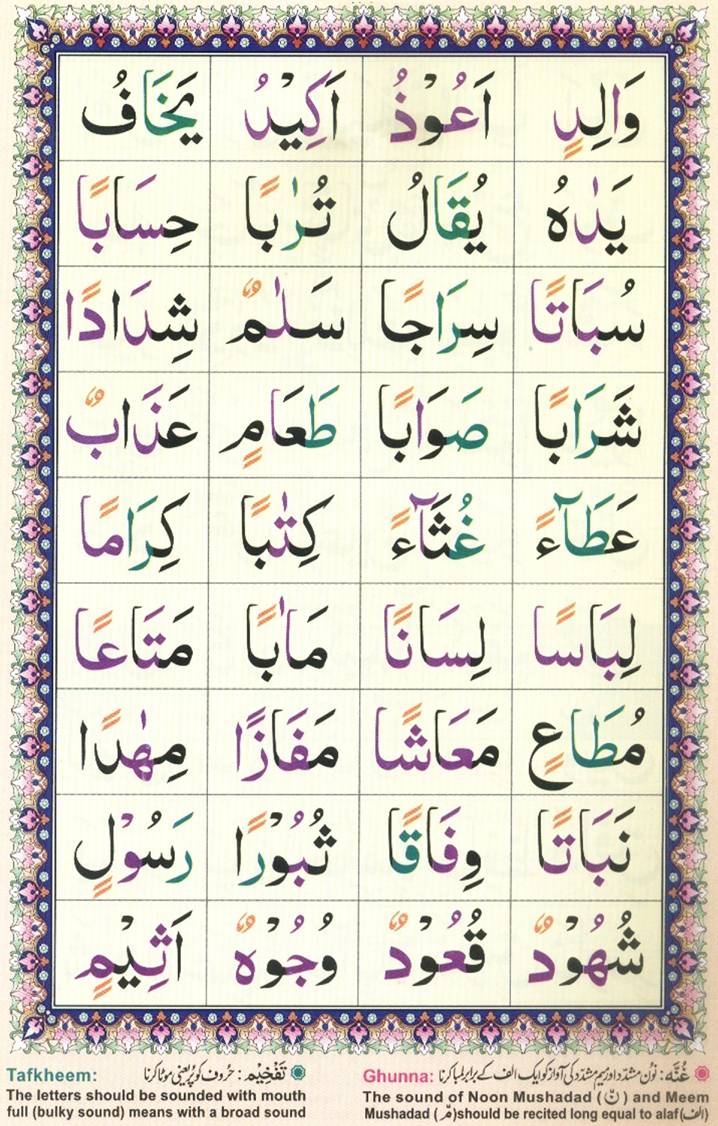 وَالِدٍ اَعُوْذُ اَكِيْدُ يَخَافُ
يَدٰهُ يُقَالُ تُرٰبًا حِسَابًا
سُبَاتًا سِرَاجًا سَلٰمٌ شِدَادًا
شَرَابًا صَوَابًا طَعَامٍ عَذَابٌ
عَطَآءً غُثَآءً كِتٰبًا كِرَامًا
لِبَاسًا لِسَانًا مَاٰبًا مَتَاعًا
مُطَاعٍ مَعَاشًا مَفَازًا مِهٰدًا
نَبَاتًا وِفَاقًا ثُبُوْرًا رَسُوْلٍ
شُهُوْدٌ قُعُوْدٌ وُجُوْهٌ اَثِيْمٍ
غُنَّه: نون مشدّد اور میم مشدّد کی آواز کو ایک الف کے برابر لمبا کرنا
Ghunna:
The sound of Noon Mushadad (نّ) and Meem
Mushadad (مّ) should be recited long equal to alaf (الف)
تَفْخِيْم: حروف کو پُر یعنی موٹا کرنا
Tafkheem:
The letters should be sounded with mouth
full (bulky sound) means with a broad sound